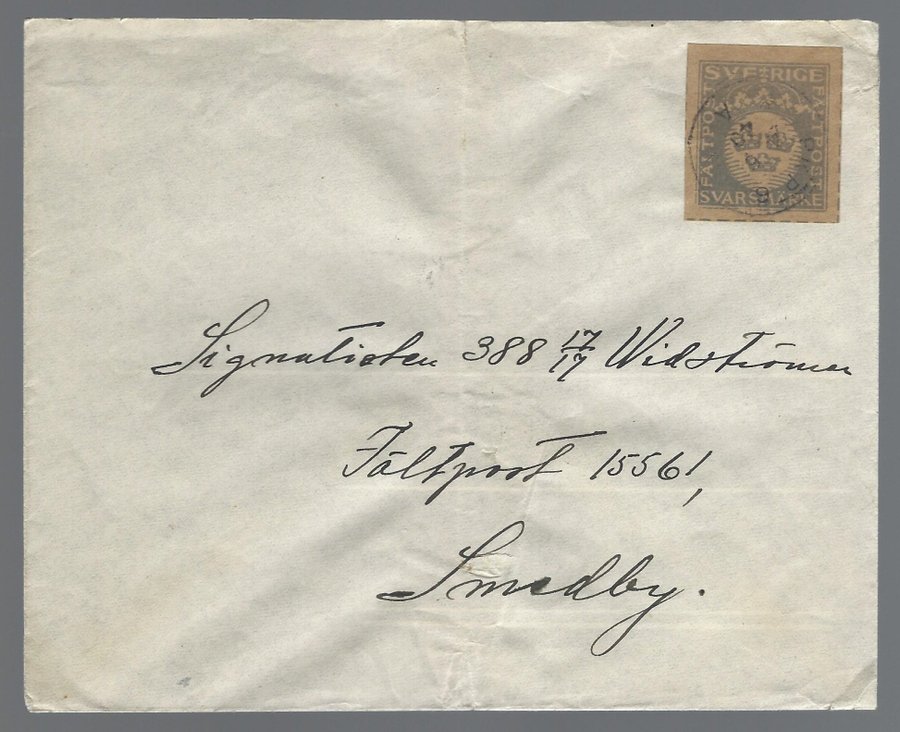 SVERIGE
FÄLTPOST
FÄLTPOST
SVARSMÄRKE
Signalisten 388 17/17 Widströmer
Fältpost 15561,
Smedby.